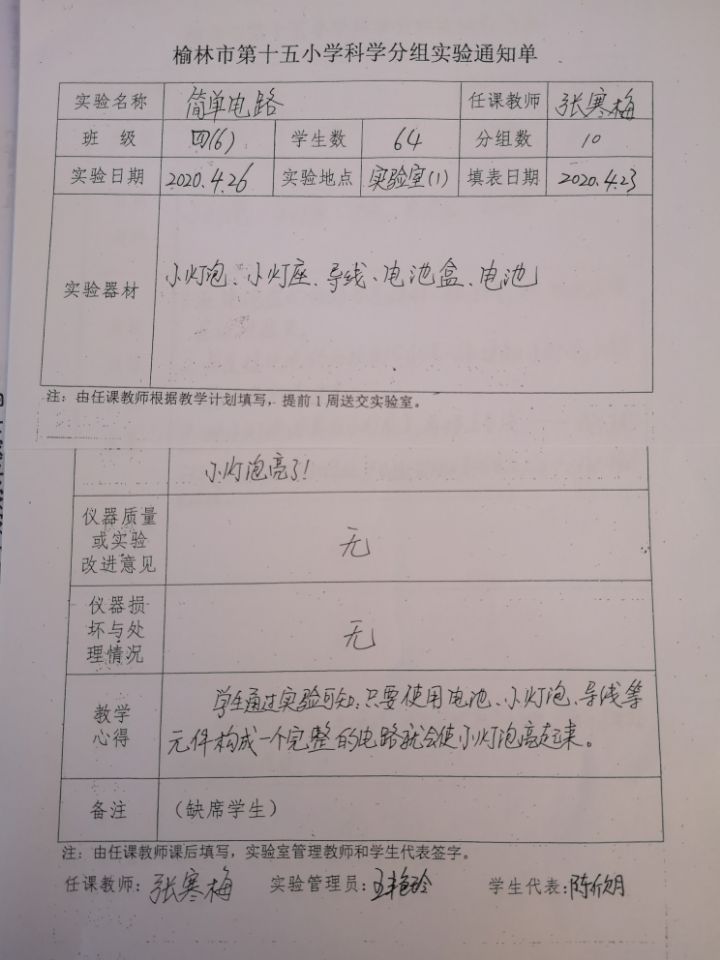 榆林市第十五小学科学分组实验通知单
实验名称 简单电路 任课教师 张寒梅
班 级 四(6) 学生数 64 分组数 10
实验日期 2020.4.26 实验地点 实验室(1) 填表日期 2020.4.23
实验器材 小灯泡、小灯座、导线、电池盒、电池
注：由任课教师根据教学计划填写，提前1周送交实验室。
小灯泡亮了!
仪器质量
或实验
改进意见
无
仪器损
坏与处
理情况
无
教学
心得
学生通过实验可知:只要使用电池、小灯泡、导线等
元件构成一个完整的电路就会使小灯泡亮起来。
备注 （缺席学生）
注：由任课教师课后填写，实验室管理教师和学生代表签字。
任课教师：张寒梅 实验管理员：王艳玲 学生代表：陈欣玥